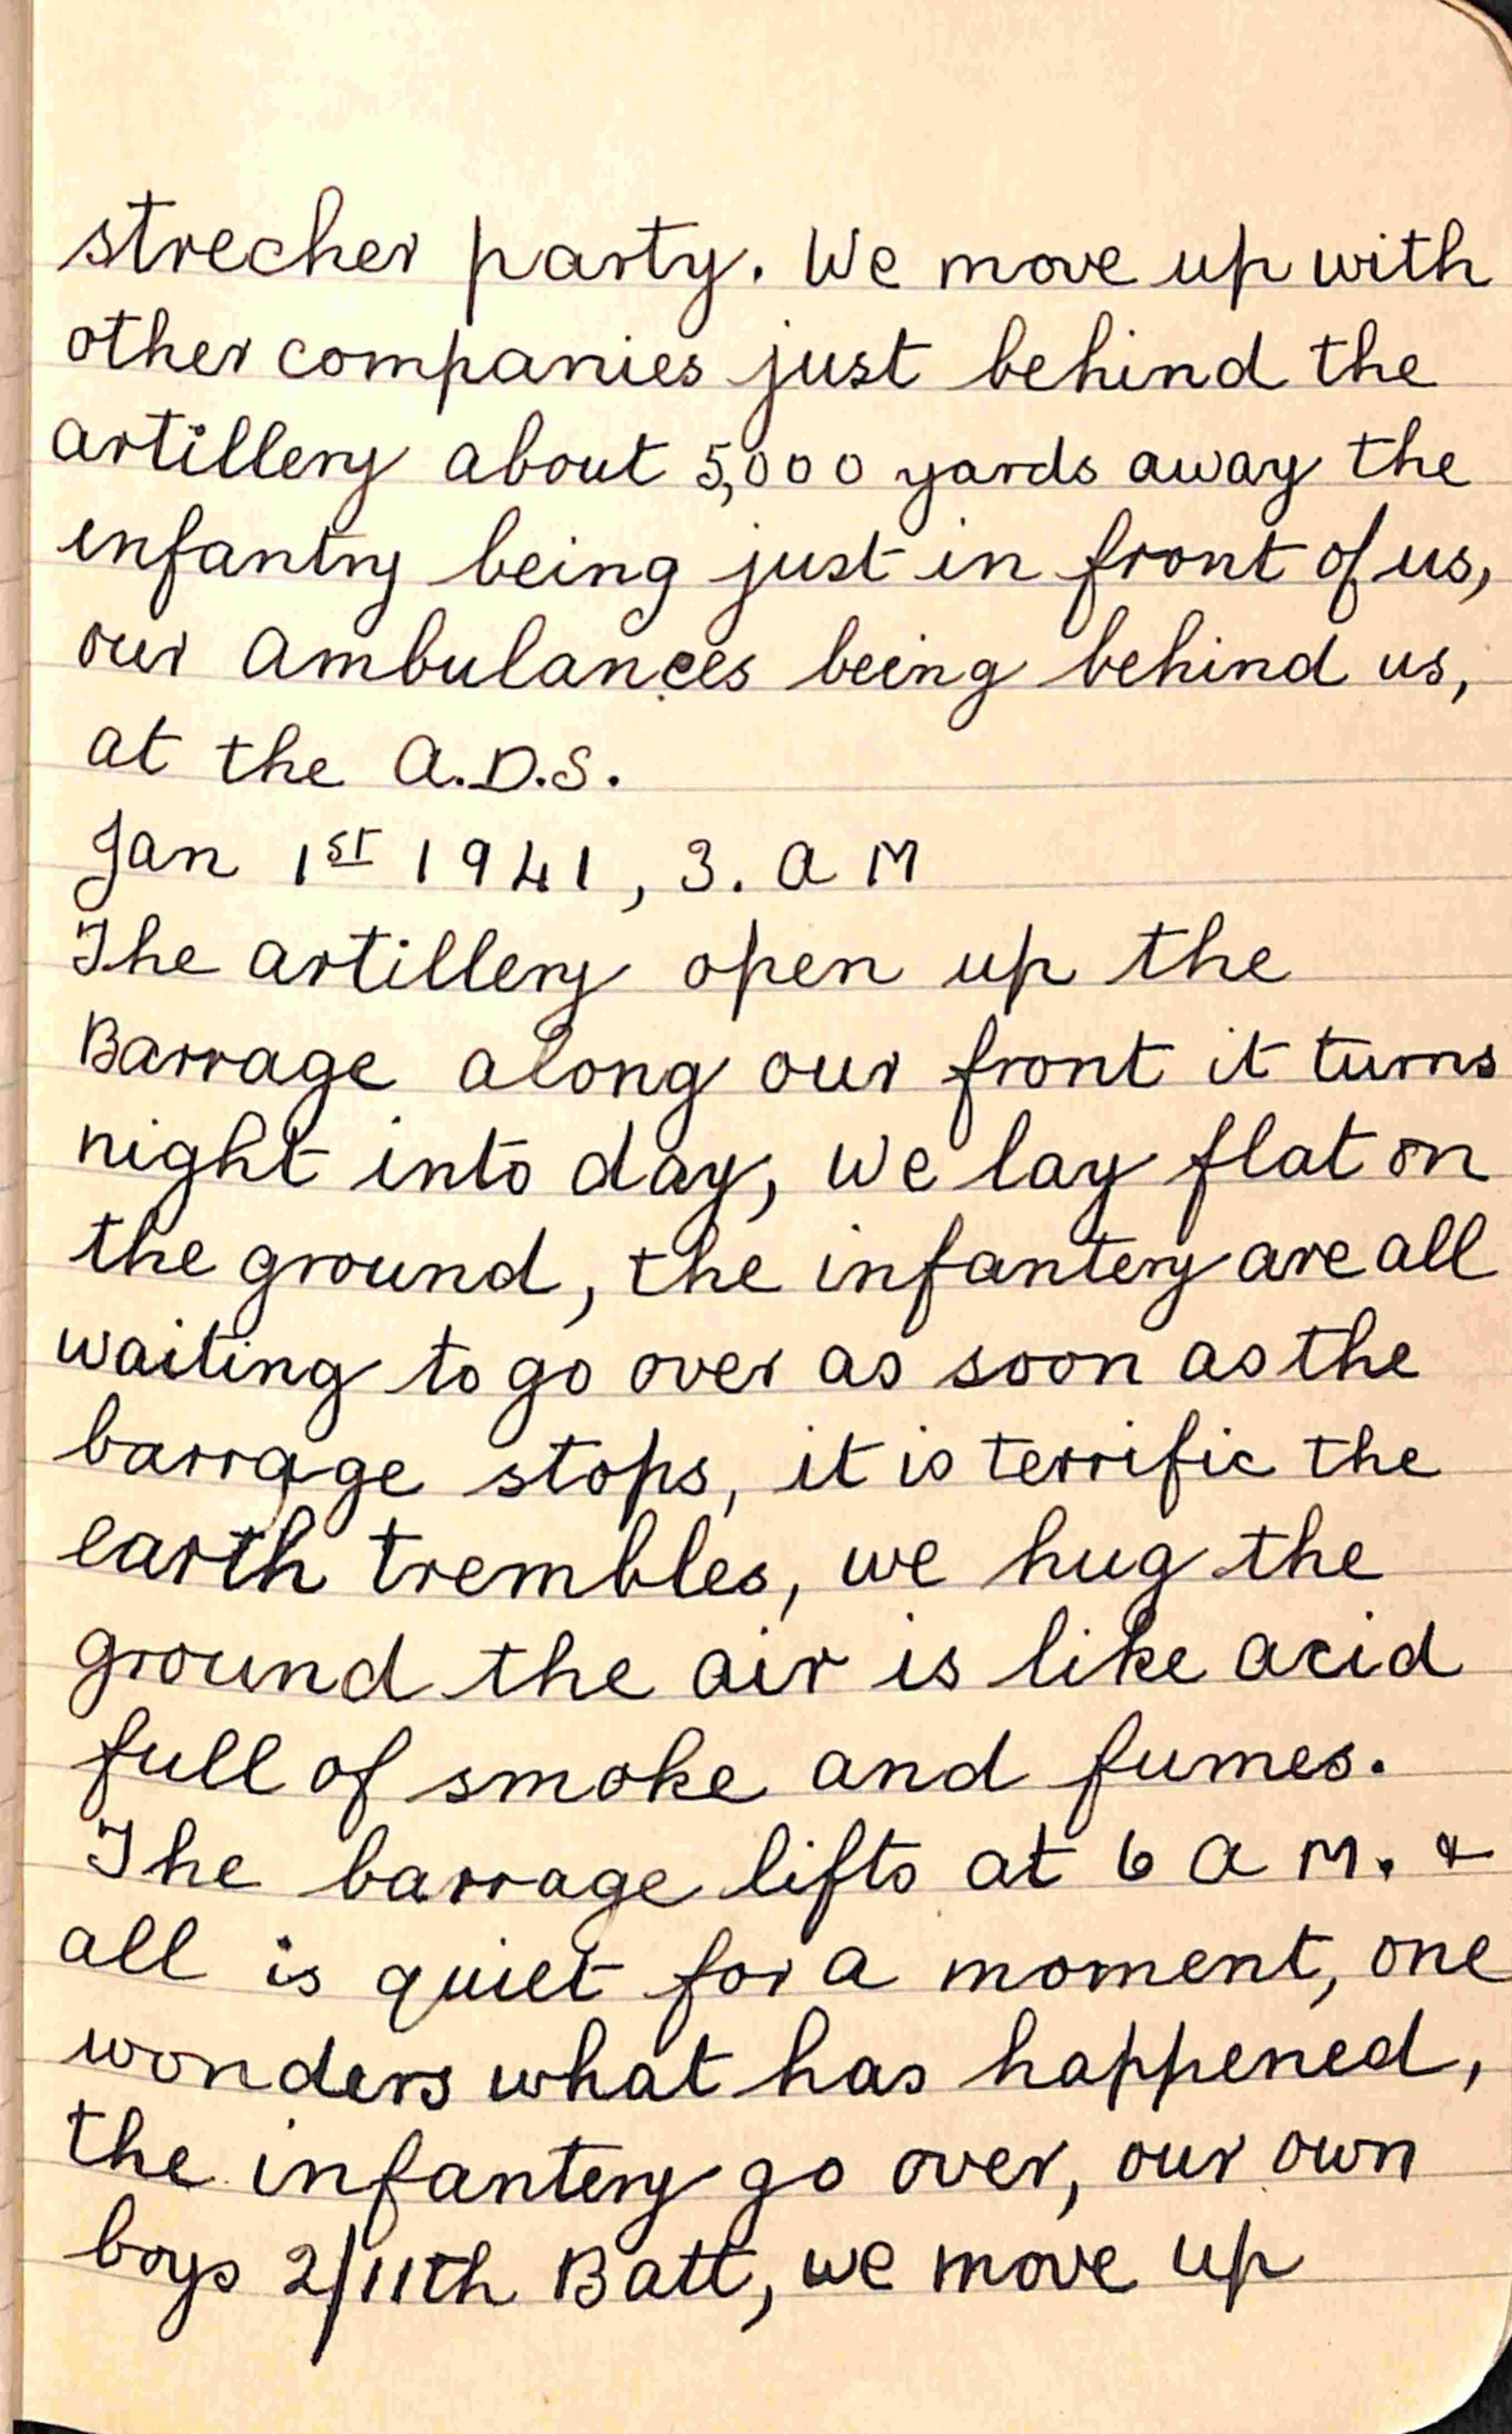 strecher party. We move up with
other companies just behind the
artillery about 5,000 yards away the
infantry being just in front of us,
our ambulances being behind us,
at the A.D.S.
Jan 1st 1941, 3. A M
The artillery open up the
Barrage along our front it turns
night into day, we lay flat on
the ground, the infantery are all
waiting to go over as soon as the
barrage stops, it is terrific the
earth trembles, we hug the
ground the air is like acid
full of smoke and fumes.
The barrage lifts at 6 A M. &
all is quiet for a moment, one
wonders what has happened,
the infantery go over, our own
boys 2/11th Batt, we move up